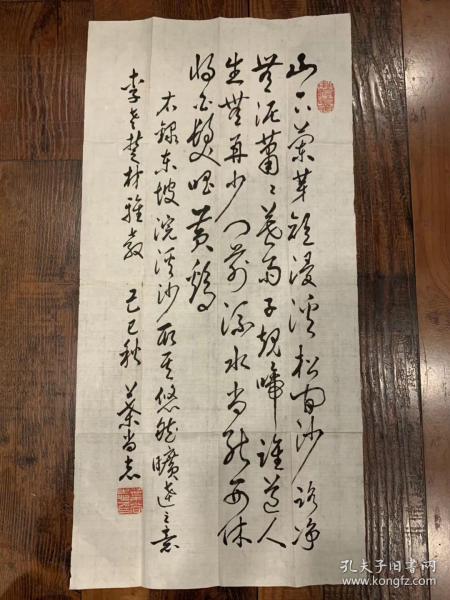 山下兰芽短浸溪松间沙路净
无泥萧〻暮雨子规啼谁道人
生无再少门前流水尚能西休
将白发唱黄鸡
右录东坡浣溪沙取其悠然旷达之意
李老楚材雅教 己巳秋 蔡尚志
孔夫子旧书网
www.kongfz.com